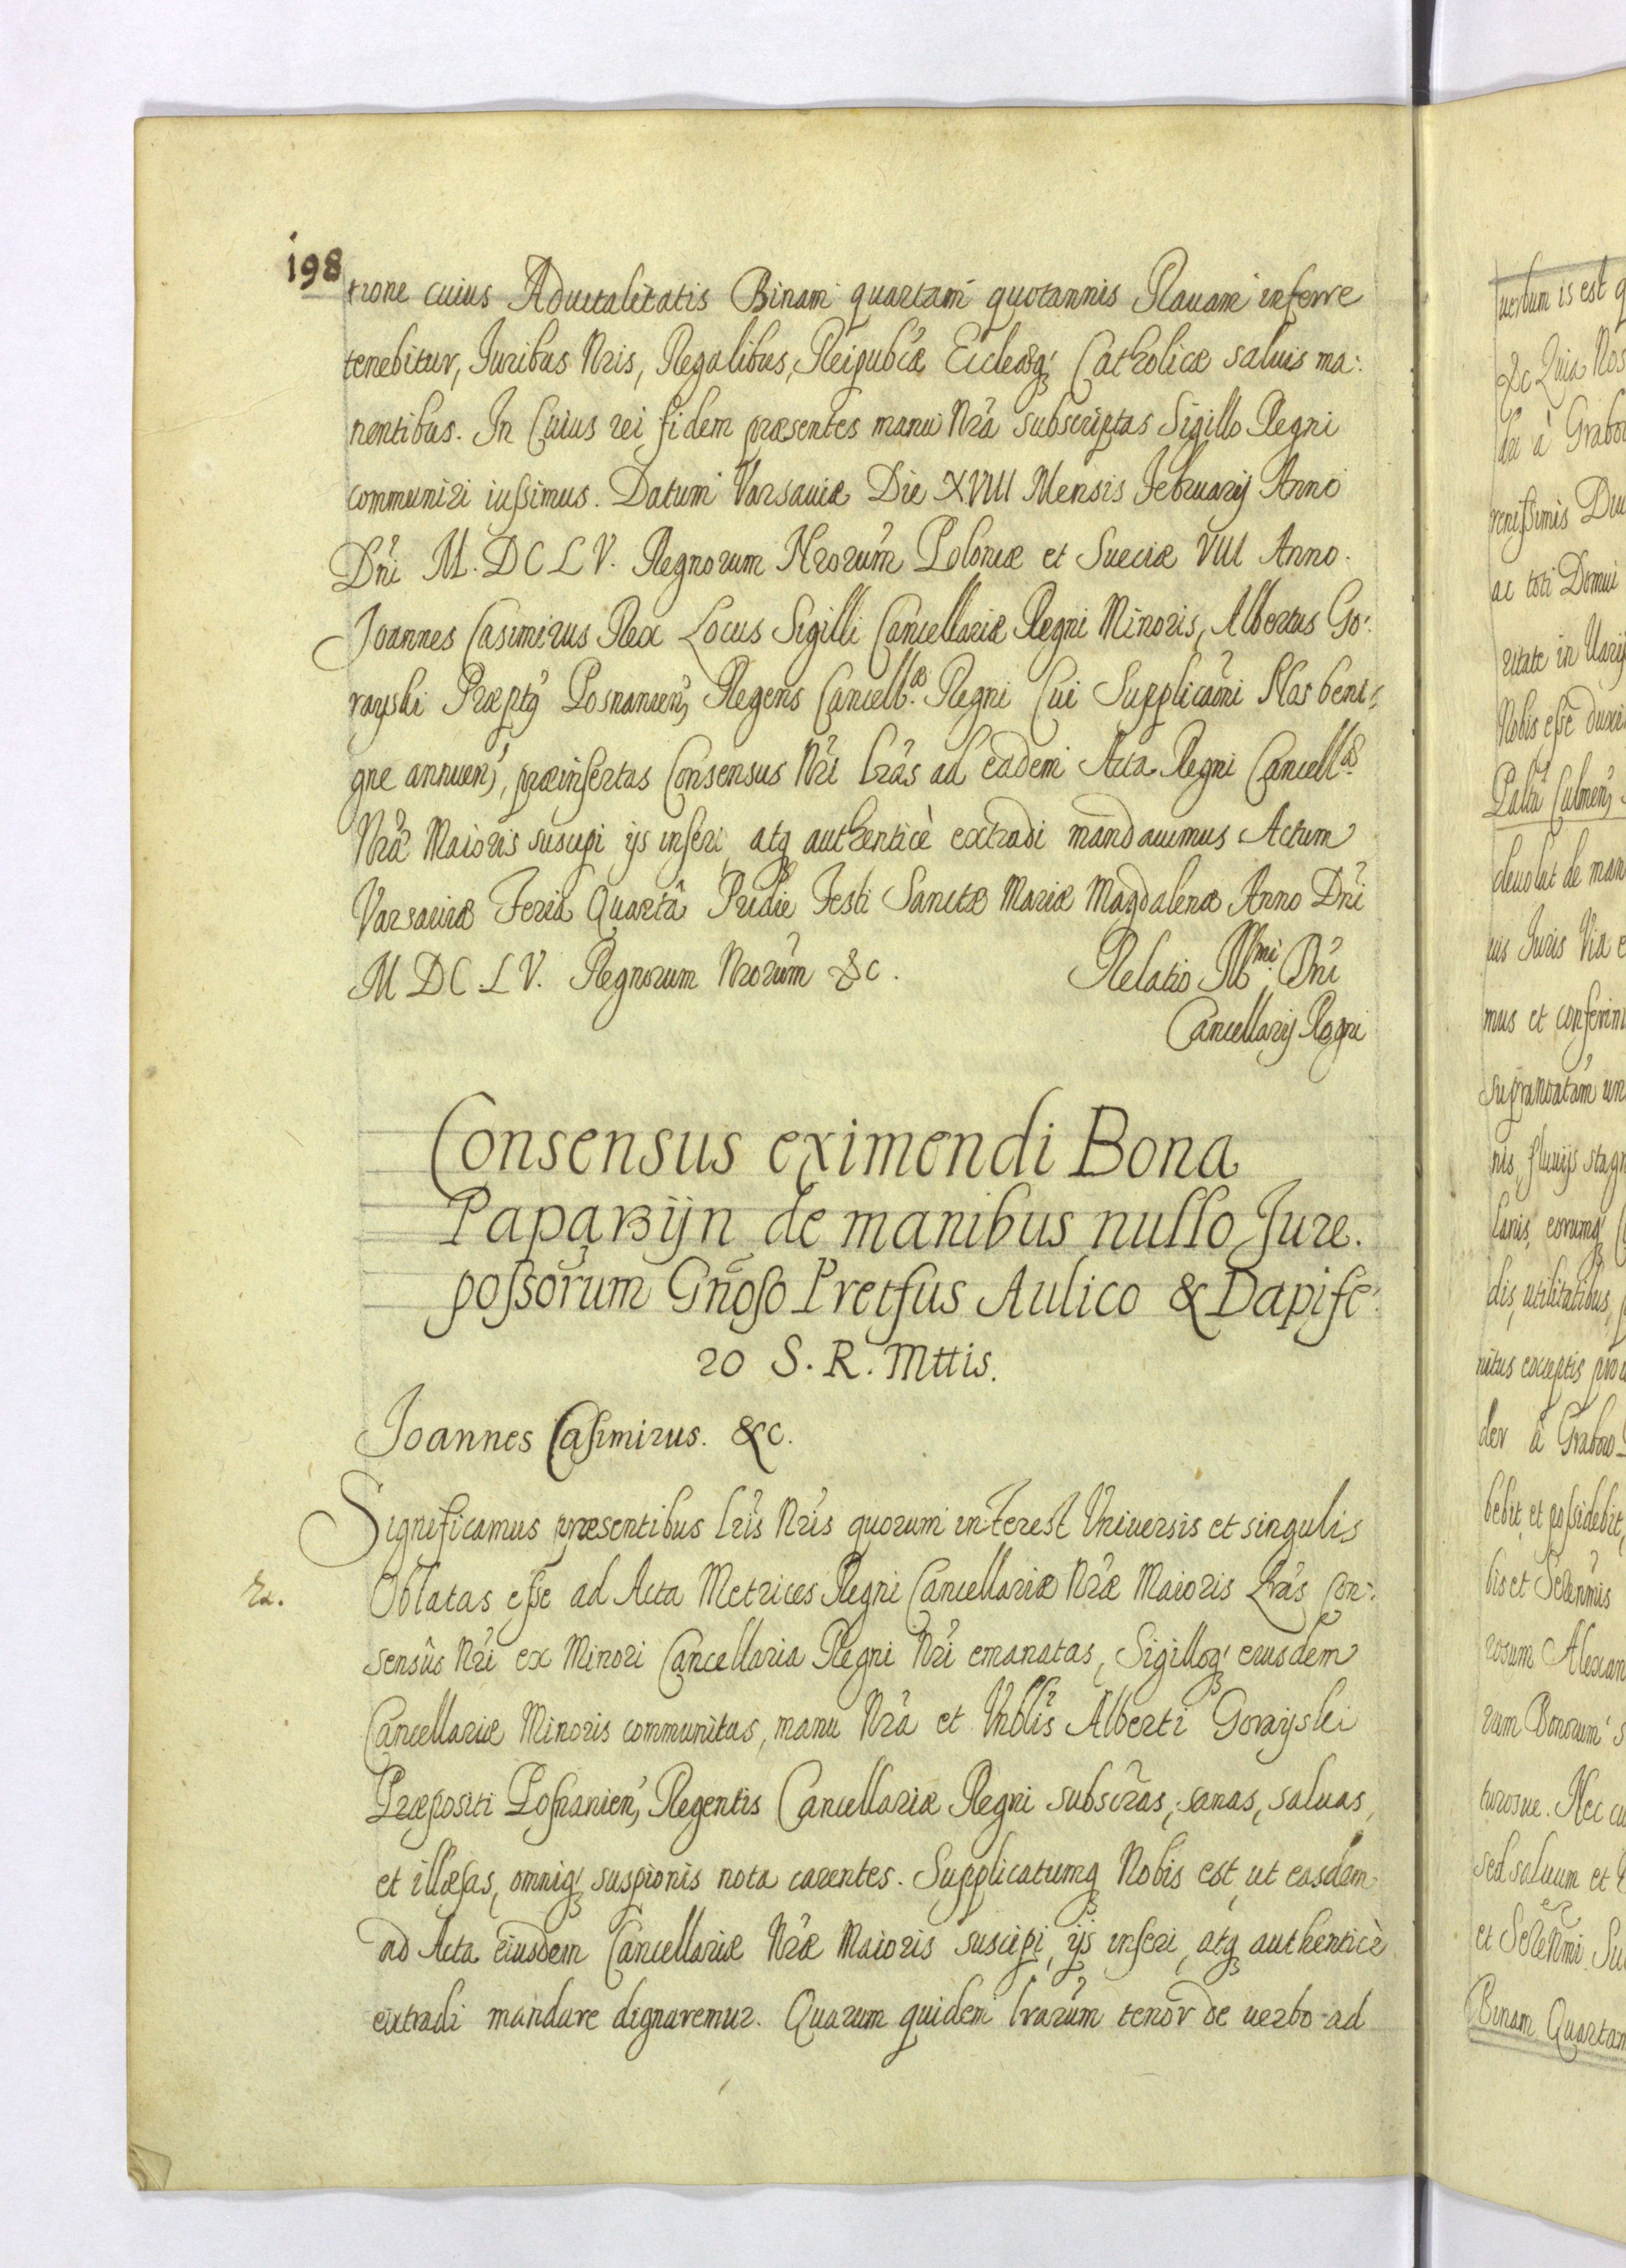 198
tione cuius Aduitalitatis Binam quartam quotannis Rauam inferre
tenebitur, Juribus Nris, Regalibus, Reipublcæ Eccleæq; Catholicæ saluis ma:
nentibus. In Cuius rei fidem præsentes manu Nra subscriptas Sigillo Regni
communiri iussimus. Datum Varsauiæ Die XVIII Mensis Februarij Anno
Dni M. DC L V. Regnorum Nrorum Poloniæ et Sueciæ VIII Anno.
Joannes Casimirus Rex Locus Sigilli Cancellariæ Regni Minoris, Albertus Go:
rayski Præptq Posnanien, Regens Cancellæ. Regni Cui Supplicaoni Nos beni:
gne annuen, præinsertas Consensus Nri lras ad eadem Acta Regni Cancellæ
Nræ Maioris suscipi ijs inseri, atq authenticè extradi mandauimus Actum
Varsauiæ Feria Quartâ Pridie Festi Sanctæ Mariæ Magdalenæ Anno Dni
M DC L V. Regnorum Nrorum &c. Relatio Illmi Dni
Cancellarij Regni
Consensus eximendi Bona
Papąrzijn de manibus nullo Jure.
possorum Gnoso Pretfus Aulico & Dapife:
ro S. R. Mttis.
Joannes Casimirus. &c.
Significamus præsentibus lris Nris quorum interest Vniuersis et singulis
Oblatas esse ad Acta Metrices Regni Cancellariæ Nræ Maioris Lras Con:
sensûs Nri ex Minori Cancellaria Regni Nri emanatas, Sigilloq; eiusdem
Cancellariæ Minoris communitas, manu Nra et Vnblis Alberti Gorayski
Præpositi Posnanien, Regentis Cancellariæ Regni subscras, sanas, saluas,
et illæsas, omniq; suspionis nota carentes. Supplicatumq Nobis est, ut easdem
ad Acta eiusdem Cancellariæ Nræ Maioris suscipi, ijs inseri, atq authenticè
extradi mandare dignaremur. Quarum quidem lrarum tenor de uerbo ad
uerbum is est
&c Quia Nos
à Grabo
renissimis Du
ac toti Domui
ritate in Uarij
Nobis esse duxi
Palta Culmen,
deuolut de man
uis Juris Via e
mus et conferim
supranoatam
nis, fluuijs stagn
eorumq
dis, utilitatibus,
exceptis
der à Grabow
bebit et possidebit,
bis et Serenmis
rosum Alexan
rum Bonorum s
turosue. Nec cu
sed saluum et
et Serenmi Su
Binam Quartam